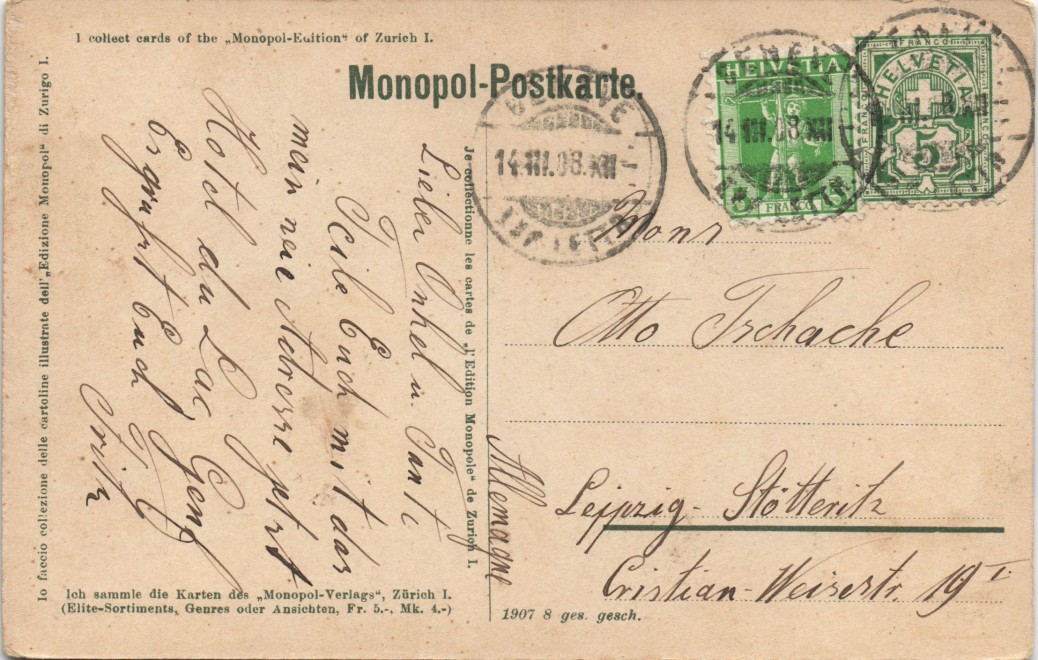 I collect cards of the „Monopol-Edition“ of Zurich I.
Monopol-Postkarte.
Io faccio collezione delle cartoline illustrate dell'„Edizione Monopol“ di Zurigo I.
Je collectionne les cartes de „l'Edition Monopole“ de Zurich I.
Lieber Onkel u. Tante
Teile Euch mit das
mein neie Adresse jetzt
Hotel du Lac Genf
Es grüßt Euch
Fritz
GENÈVE
14.III.08.XII
HELVETIA
5 FRANCO 5
14.III.08.XII
FRANCO
HELVETIA
FRANCO
5
Mons
Otto Tschache
Leipzig-Stötteritz
Cristian-Weisestr. 19 I
Allemagne
Ich sammle die Karten des „Monopol-Verlags“, Zürich I.
(Elite-Sortiments, Genres oder Ansichten, Fr. 5.-, Mk. 4.-)
1907 8 ges. gesch.